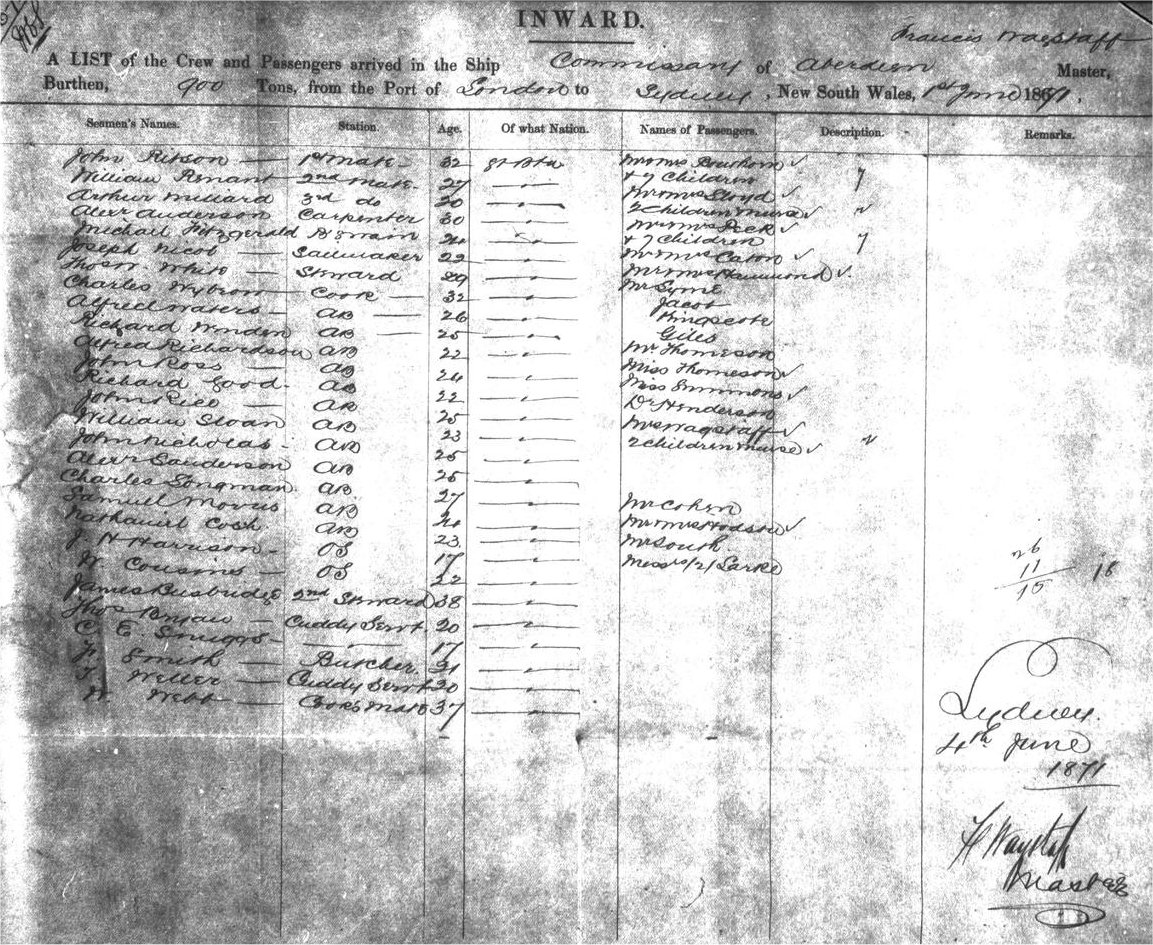 INWARD.
Francis Wagstaff
A LIST of the Crew and Passengers arrived in the Ship Commissary of Aberdeen Master,
Burthen, 900 Tons, from the Port of London to Sydney, New South Wales, 1st June 1871.
Seamen's Names. Station. Age. Of what Nation. Names of Passengers. Description. Remarks.
John Ritson 1st Mate 32 Gt Btn Mr & Mrs
William Pennant 2nd Mate 27 " & 7 Children 7
Arthur Millard 3rd do 20 " Mr & Mrs Lloyd
Alexr Anderson Carpenter 30 " 2 Children Nurse 2
Michael Fitzgerald Bswain 24 " Mr & Mrs Peek
Joseph Nicol Sailmaker 22 " & 7 Children 7
Thos W. White Steward 29 " Mr & Mrs Eaton
Charles Wybrow Cook 32 " Mr & Mrs Hammond
Alfred Waters AB 26 " Mr Syme
Richard AB 25 " Jacob
Alfred Richardson AB 22 " Kingscote
John Ross AB 24 " Giles
Richard Good AB 22 " Mr Thomeson
John Rice AB 25 " Miss Thomeson
William Sloan AB 23 " Miss Simmons
John Nicholas AB 25 " Dr Henderson
Alexr Sanderson AB 25 " Mrs Wagstaff
Charles Longman AB 27 " 2 Children Nurse 2
Samuel AB 24 " Mr Cohen
Nathaniel Cosh AB 23 " Mr & Mrs Hodson
J H Harrison OS 17 " Mr South
W Cousins OS 22 " Messrs (2) Larke
James Busbridge 2nd Steward 38 "
Thos Cuddy Servt. 20 "
C E Snuggs 17 "
F Smith Butcher. 21 "
T Weller Cuddy Servt 20 "
W Webb Cooks Mate 37 "
26
11 18
15
Sydney.
4th June
1871
F Wagstaff
Master